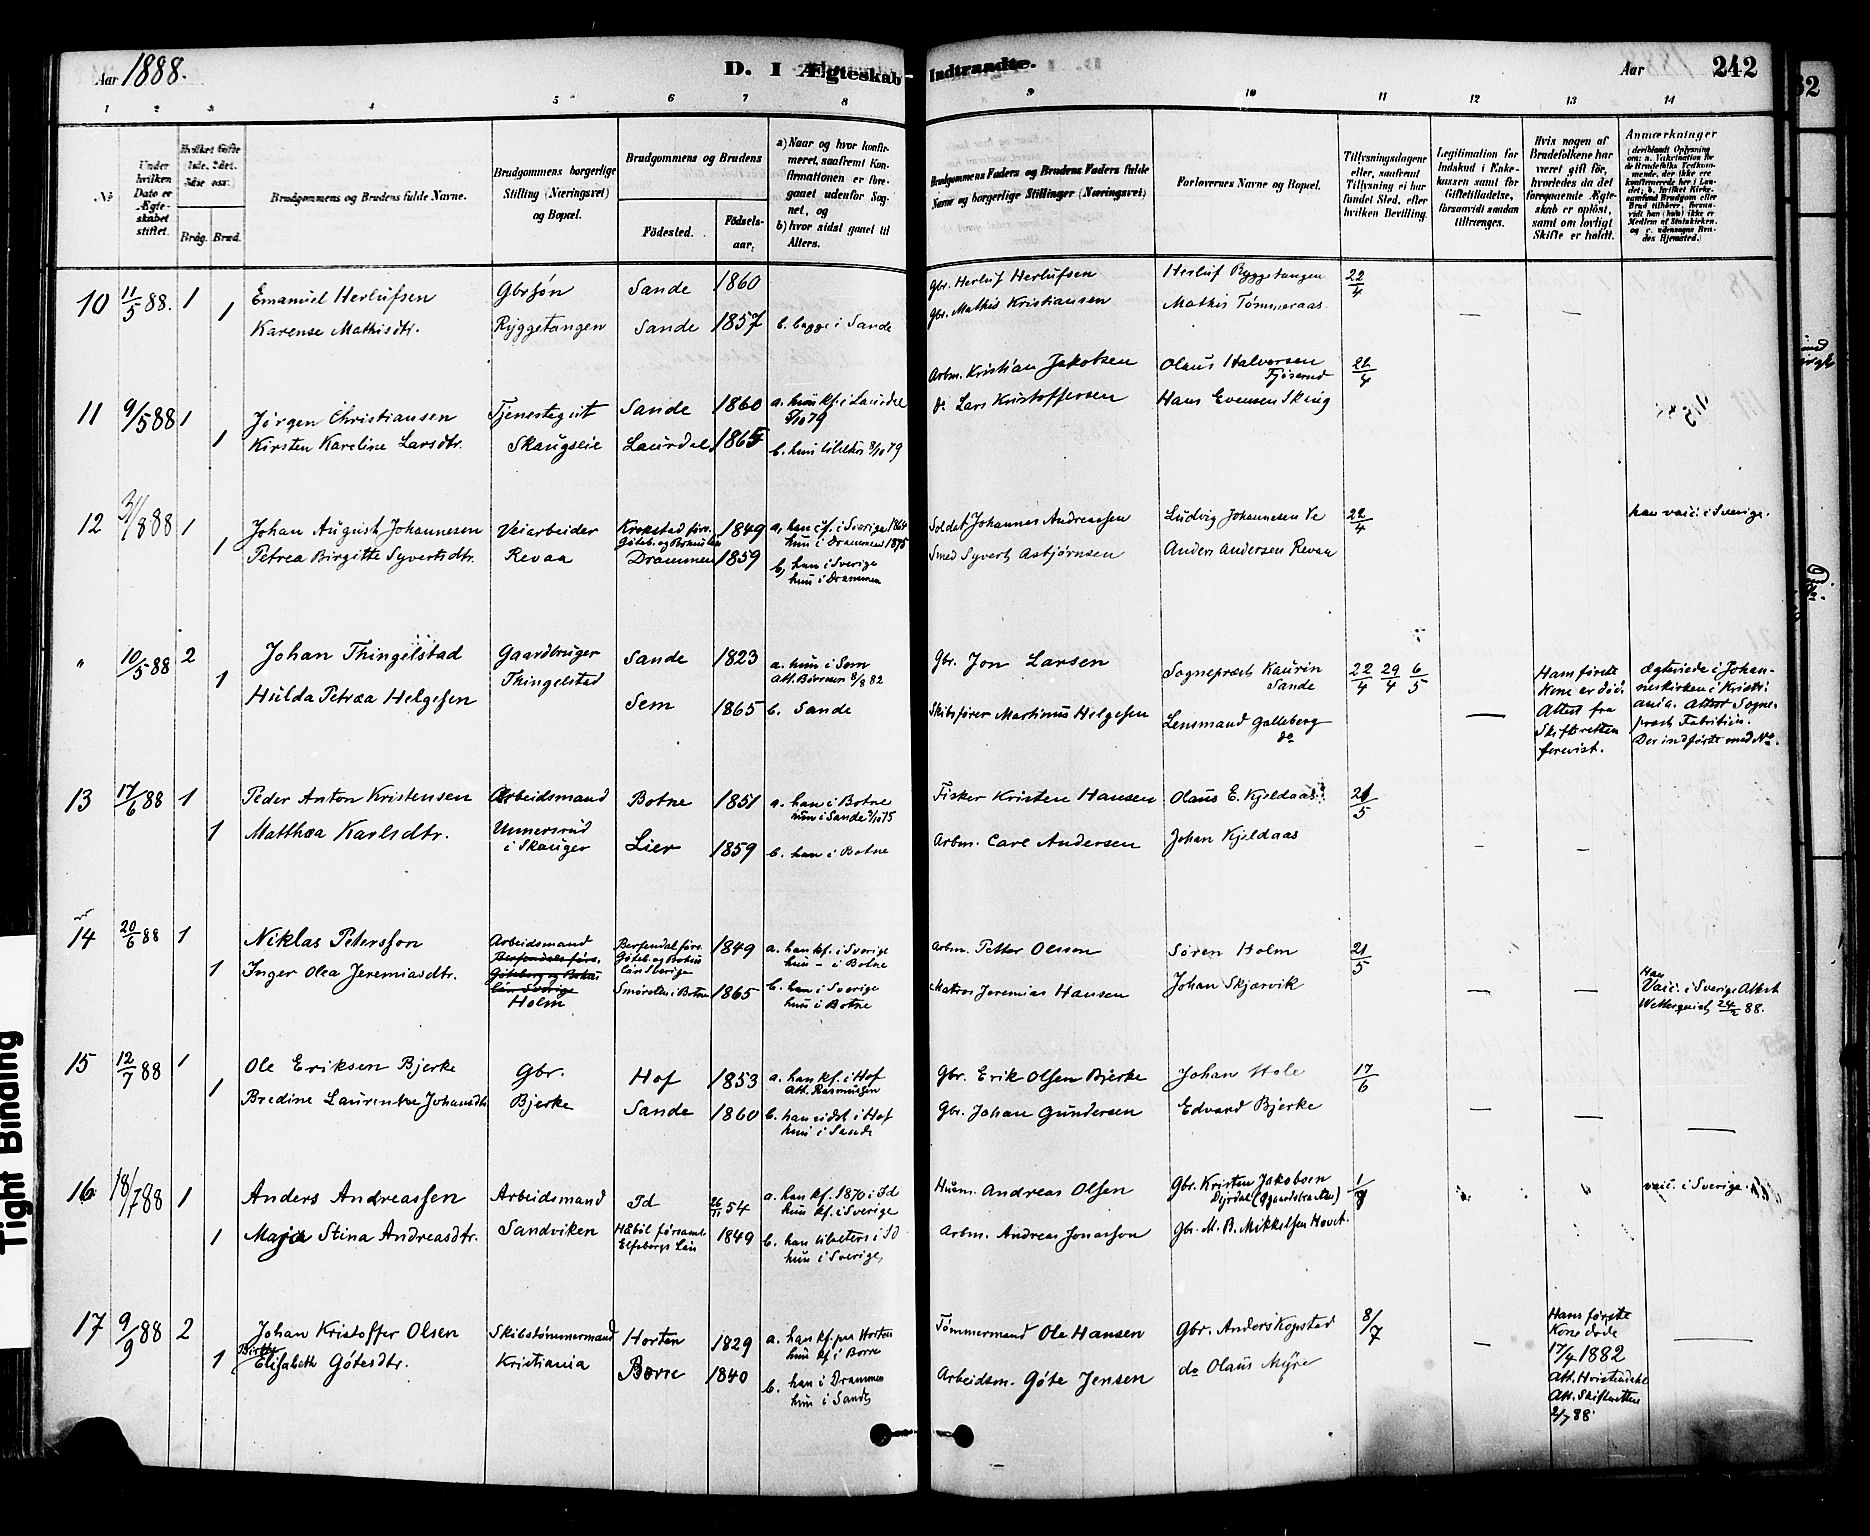 Aar 1888.
D. I Ægteskab Indtraadte.
Aar 242
1 2 3 4 5 6 7 8 9 10 11 12 13 14
No
Under hvilken Dato er Ægteskabet stiftet.
Brdg. Brud.
Brudgommens og Brudens fulde Navne.
Brudgommens borgerlige Stilling (Næringsvei) og Bopæl.
Brudgommens og Brudens
Fødested.
Fødselsaar.
a) Naar og hvor konfirmeret, saafremt Konfirmationen er foregaaet udenfor Sognet, og
b) hvor sidst gaaet til Alters.
Brudgommens Faders og Brudens Faders fulde Navne og borgerlige Stillinger (Næringsvei).
Forlovernes Navne og Bopæl.
Tillysningsdagene eller, saafremt Tillysning ei har fundet Sted, efter hvilken Bevilling.
Legitimation for Indskud i Enkekassen samt for Giftetilladelse, forsaavidt saadan tiltrænges.
Hvis nogen af Brudefolkene har været gift før, hvorledes da det foregaaende Ægteskab er opløst, samt om lovligt Skifte er holdt.
Anmærkninger
10 11/5 88. 1 Emanuel Herlufsen Gbrsøn Sande 1860 Gbr. Herluf Herlufsen Herluf Ryggetangen 22/4
1 Karense Mathisdtr. Ryggetangen Sande 1857 b. begge i Sande Gbr. Mathis Kristiansen Mathis Tømmeraas
11 9/5 88 1 Jørgen Christiansen Tjenestegut Sande 1860 a. hun kf. i Laurdal 5/10 79 Arbm. Kristian Jakobsen Olaus Halvorsen 22/4
1 Kirsten Karoline Larsdtr. Skaugseie Laurdal 1865 b. hun tilalters 8/10 79 do Lars Kristoffersen Hans Evensen Skoug
12 88 1 Johan August Johannesen Veiarbeider Krokstad førs. Göteb. og Bohuslen 1849 a. han cf. i Sverige 1864 hun i Drammen 1875 Soldat Johannes Andreassen Ludvig Johannesen Ve 22/4 han vacc. i Sverige.
1 Petrea Birgitte Syvertsdtr. Revaa Drammen 1859 b. han i Sverige hun i Drammen Smed Syvert Asbjørnsen Anders Andersen Revaa
" 10/5 88 2 Johan Thingelstad Gaardbruger Sande 1823 a. hun i Sem Att. 8/8 82 Gbr. Jon Larsen Sogneprest Kaurin Sande 22/4 29/4 6/5
1 Hulda Petræa Helgesen Thingelstad Sem 1865 b. Sande Skibsfører Martinus Helgesen Lensmand Galleberg do
Hans første Kone er død. Attest fra Skifteretten forevist.
Ægteviede i Johanneskirken i Kristiania. Attest Sogneprest Fabritius. Der indførte med No.
13 17/6 88 1 Peder Anton Kristensen Arbeidsmand Botne 1851 a. han i Botne hun i Sande Fisker Kristen Hansen Olaus E. Kjeldaas 21/5
1 Matthea Karlsdtr. i Skauger Lier 1859 b. han i Botne Arbm. Carl Andersen Johan Kjeldaas
14 20/6 88 1 Niklas Petersson Arbeidsmand Göteb. og Bohus län Sverige 1849 a. han kf. i Sverige hun - i Botne Arbm. Petter Olsson Søren Holm 21/5
1 Inger Olea Jeremiasdtr. Holm i Botne 1865 b. han i Sverige hun i Botne Matros Jeremias Hansen Johan Skjærvik
Han Vacc. i Sverige Attest 88.
15 12/7 88 1 Ole Eriksen Bjerke Gbr. Hof 1853 a. han kf. i Hof Att. Rasmussen Gbr. Erik Olsen Bjerke Johan Hole 17/6
1 Bredine Laurentse Johansdtr. Bjerke Sande 1860 b. han sidst i Hof hun i Sande Gbr. Johan Gundersen Edvard Bjerke
16 18/7 88 1 Anders Andreassen Arbeidsmand Id 26/11 54 a. han kf. 1870 i Id hun kf. i Sverige Husm. Andreas Olsen Gbr. Kristen Jakobsen vacc. i Sverige.
1 Maja Stina Andreasdtr. Sandviken Elfsborgs Län 1849 b. han tilalters i Id hun i Sverige Arbm. Andreas Jonasson Gbr. M. B. Mikkelsen Hovet.
17 9/9 88 2 Johan Kristoffer Olsen Skibstømmermand Horten 1829 a. han kf. paa Horten hun kf. i Borre Tømmermand Ole Hansen Gbr. Anders Kopstad 8/7
1 Elisabeth Gøtesdtr. Kristiania Borre 1840 b. han i Drammen hun i Sande Arbeidsm. Gøte Jensen do Olaus Myre
Hans første Kone døde 17/4 1882 Att. Att. Skifteretten 2/7 88.
Tight Binding